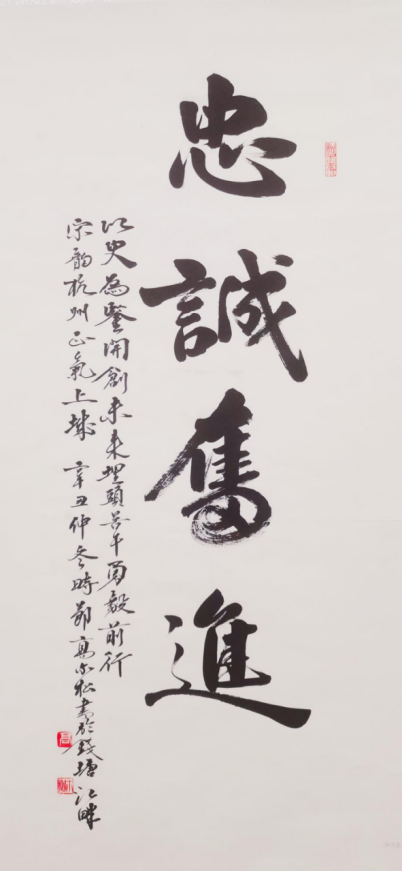 忠誠奮進
以史為鑒開創未来埋頭苦干勇毅前行
宋韵杭州正氣上城 辛丑仲冬時節高尔松書於錢塘江畔